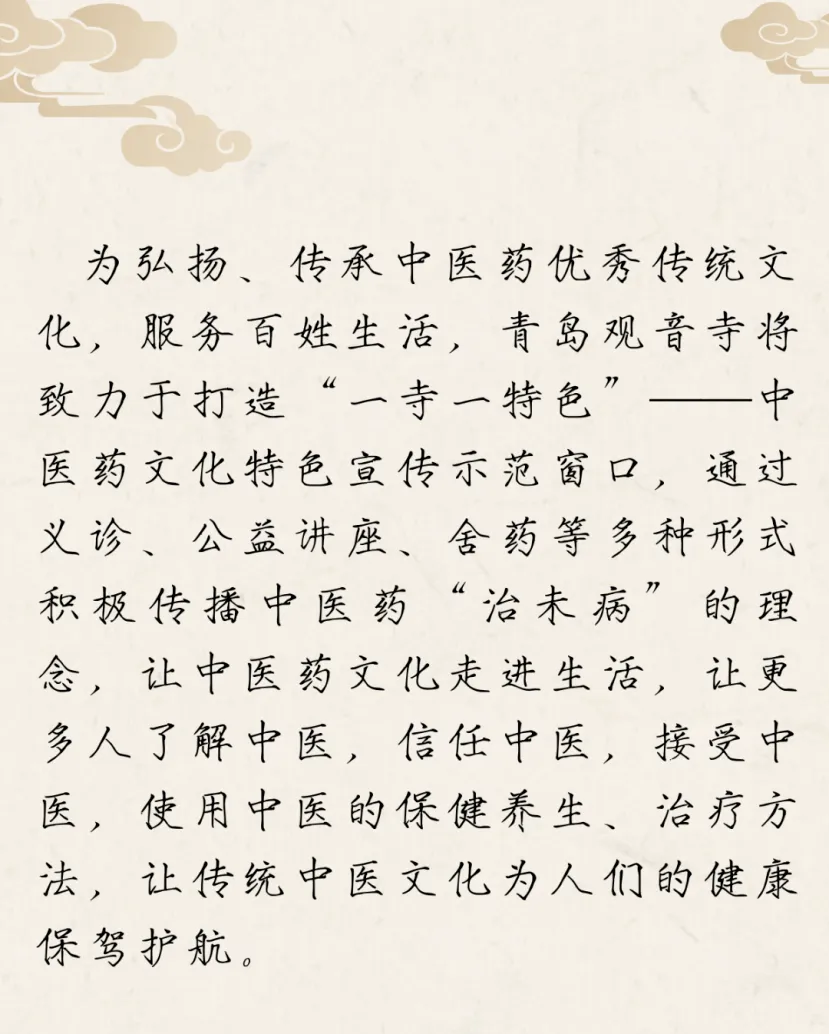 为弘扬、传承中医药优秀传统文
化，服务百姓生活，青岛观音寺将
致力于打造“一寺一特色”——中
医药文化特色宣传示范窗口，通过
义诊、公益讲座、舍药等多种形式
积极传播中医药“治未病”的理
念，让中医药文化走进生活，让更
多人了解中医，信任中医，接受中
医，使用中医的保健养生、治疗方
法，让传统中医文化为人们的健康
保驾护航。